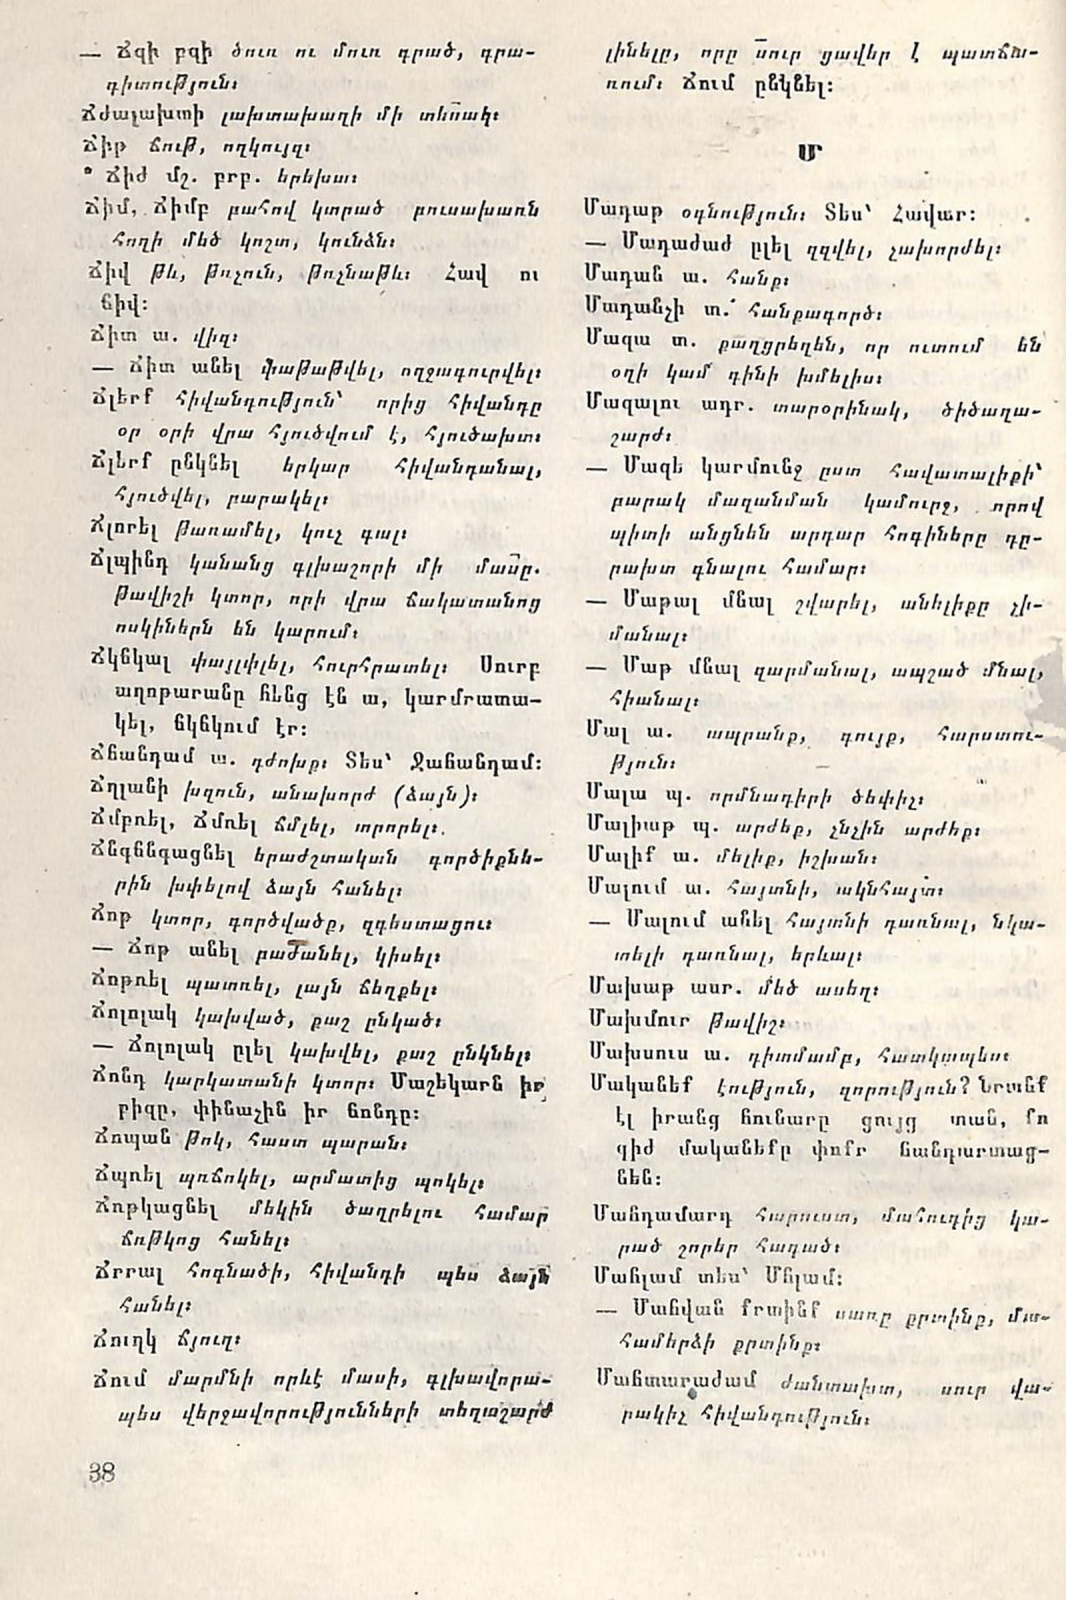 — Ճզի բզի ծուռ ու մուռ գրած, գրա-
գիտություն։
Ճժալախտի լախտախաղի մի տեսակ։
Ճիթ ճութ, ողկույզ։
Ճիժ մշ. բրբ. երեխա։
Ճիմ, Ճիմբ բահով կտրած բուսախառն
հողի մեծ կոշտ, կունձն։
Ճիվ թև, թռչուն, թռչնաթև։ Հավ ու
ճիվ։
Ճիտ ա. վիզ։
— Ճիտ անել փաթաթվել, ողջագուրվել։
Ճլերք հիվանդություն՝ որից հիվանդը
օր օրի վրա հյուծվում է, հյուծախտ։
Ճլերք ընկնել երկար հիվանդանալ,
հյուծվել, բարակել։
Ճլորել թառամել, կուչ գալ։
Ճլպինդ կանանց գլխաշորի մի մասը.
թավիշի կտոր, որի վրա ճակատանոց
ոսկիներն են կարում։
Ճկնկալ փայլփլել, հուրհրատել։ Սուրբ
աղոթարանը հենց էն ա, կարմրատա-
կել, ճկնկում էր։
Ճհանդամ ա. դժոխք։ Տես՝ Ջահանդամ։
Ճղլանի խզուն, անախորժ (ձայն)։
Ճմբռել, Ճմռել ճմլել, տրորել։
Ճնգճնգացնել երաժշտական գործիքնե-
րին խփելով ձայն հանել։
Ճոթ կտոր, գործվածք, զգեստացու։
— Ճոթ անել բաժանել, կիսել։
Ճոթռել պատռել, լայն ճեղքել։
Ճոլոլակ կախված, քաշ ընկած։
— Ճոլոլակ ըլել կախվել, քաշ ընկնել։
Ճոնդ կարկատանի կտոր։ Մաշեկարն իր
բիզը, փինաչին իր ճոնդը։
Ճոպան թոկ, հաստ պարան։
Ճպռել պոճոկել, արմատից պոկել։
Ճոթկացնել մեկին ծաղրելու համար
ճոթկոց հանել։
Ճռռալ հոգնածի, հիվանդի պես ձայն
հանել։
Ճուղկ ճյուղ։
Ճում մարմնի որևէ մասի, գլխավորա-
պես վերջավորությունների տեղաշարժ
լինելը, որը սուր ցավեր է պատճա-
ռում։ Ճում ընկնել։
Մ
Մադաթ օգնություն։ Տես՝ Հավար։
— Մադաժաժ ըլել զզվել, չախորժել։
Մադան ա. հանք։
Մադանչի տ. հանքագործ։
Մազա տ. քաղցրեղեն, որ ուտում են
օղի կամ գինի խմելիս։
Մազալու ադր. տարօրինակ, ծիծաղա-
շարժ։
— Մազե կարմունջ ըստ հավատալիքի՝
բարակ մազանման կամուրջ, որով
պիտի անցնեն արդար հոգիները դը-
րախտ գնալու համար։
— Մաթալ մնալ շվարել, անելիքը չի-
մանալ։
— Մաթ մնալ զարմանալ, ապշած մնալ,
հիանալ։
Մալ ա. ապրանք, գույք, հարստու-
թյուն։
Մալա պ. որմնադիրի ծեփիչ։
Մալիաթ պ. արժեք, չնչին արժեք։
Մալիք ա. մելիք, իշխան։
Մալում ա. հայտնի, ակնհայտ։
— Մալում անել հայտնի դառնալ, նկա-
տելի դառնալ, երևալ։
Մախաթ ասր. մեծ ասեղ։
Մախմուր թավիշ։
Մախսուս ա. դիտմամբ, հատկապես։
Մականեք էություն, զորություն? Նրանք
էլ իրանց հունարը ցույց տան, քո
գիժ մականեքը փոքր հանդարտաց-
նեն։
Մահդամարդ հարուստ, մահուդից կա-
րած շորեր հագած։
Մահլամ տես՝ Մհլամ։
— Մահվան քրտինք սառը քրտինք, մա-
համերձի քրտինք։
Մահտարաժամ ժանտախտ, սուր վա-
րակիչ հիվանդություն։
38